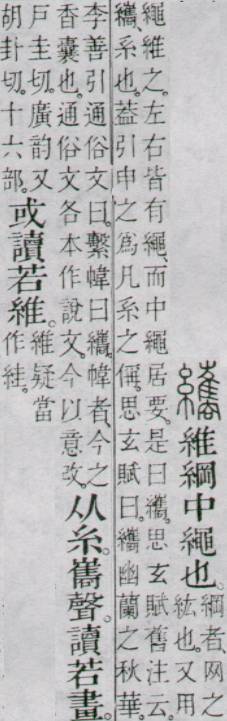 纗 維綱中繩也。綱者、网之
紘也。又用
繩維之。左右皆有繩、而中繩居要。是曰纗。思玄賦舊注云。
纗、系也。葢引申之爲凡系之偁。思玄賦曰。纗幽蘭之秋華。
李善引通俗文曰。繫幃曰纗。幃者、今之
香囊也。通俗文各本作說文。今以意改。从糸巂聲。讀若畫。
戶圭切。廣韵又
胡卦切。十六部。或讀若維。維疑當
作絓。